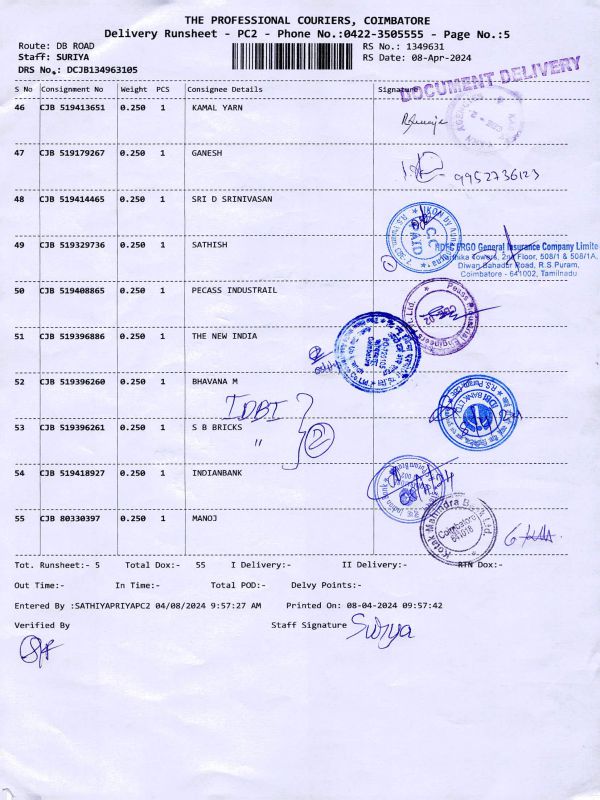 THE PROFESSIONAL COURIERS, COIMBATORE
Delivery Runsheet - PC2 - Phone No.:0422-3505555 - Page No.:5
Route: DB ROAD RS No.: 1349631
Staff: SURIYA RS Date: 08-Apr-2024
DRS No.: DCJB134963105
DOCUMENT DELIVERY
S No Consignment No Weight PCS Consignee Details Signature
46 CJB 519413651 0.250 1 KAMAL YARN
47 CJB 519179267 0.250 1 GANESH
9952736123
48 CJB 519414465 0.250 1 SRI D SRINIVASAN
49 CJB 519329736 0.250 1 SATHISH
HDFC ERGO General Insurance Company Limite
Towers, 2nd Floor, 508/1 & 508/1A,
Diwan Bahadur Road, R.S.Puram,
Coimbatore - 641002, Tamilnadu
50 CJB 519408865 0.250 1 PECASS INDUSTRAIL
51 CJB 519396886 0.250 1 THE NEW INDIA
52 CJB 519396260 0.250 1 BHAVANA M
IDBI
53 CJB 519396261 0.250 1 S B BRICKS
" 2
54 CJB 519418927 0.250 1 INDIANBANK
55 CJB 80330397 0.250 1 MANOJ
Kotak Mahindra Bank Ltd.
Coimbatore
641018
Tot. Runsheet:- 5 Total Dox:- 55 I Delivery:- II Delivery:- RTN Dox:-
Out Time:- In Time:- Total POD:- Delvy Points:-
Entered By :SATHIYAPRIYAPC2 04/08/2024 9:57:27 AM Printed On: 08-04-2024 09:57:42
Verified By Staff Signature Suriya